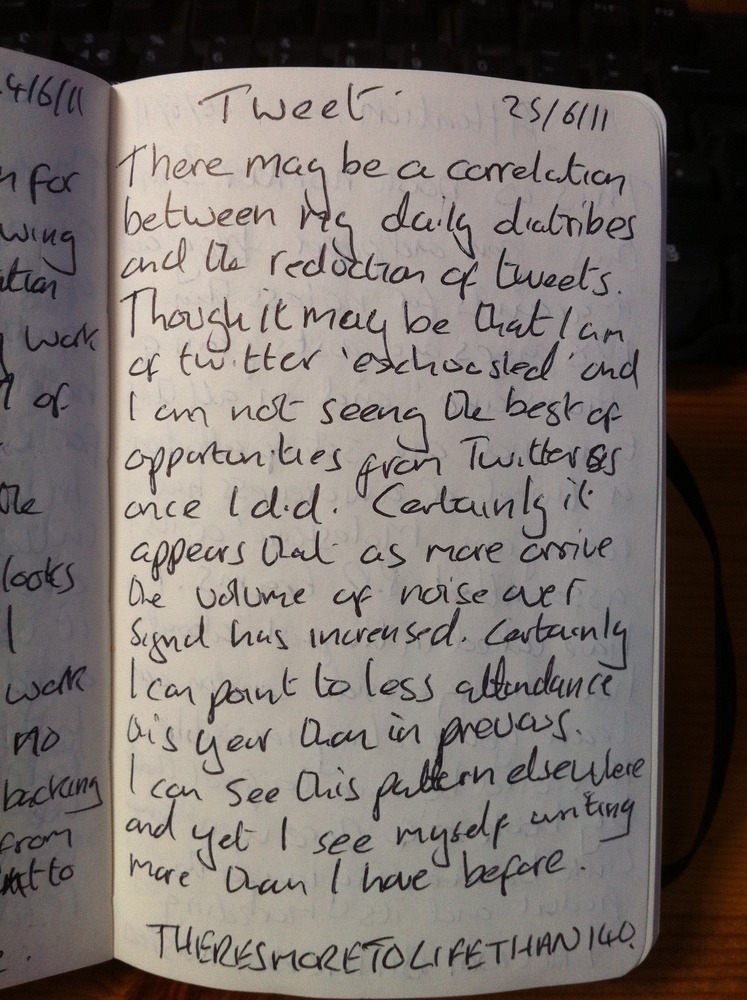 4/6/11
n for
wing
ation
work
of
the
looks
I
work
no
backing
from
to
Tweet. 25/6/11
There may be a correlation
between my daily diatribes
and the reduction of tweets.
Though it may be that I am
of twitter 'exhausted' and
I am not seeing the best of
opportunities from Twitter as
once I did. Certainly it
appears that as more arrive
the volume of noise over
signal has increased. Certainly
I can point to less attendance
this year than in previous.
I can see this pattern elsewhere
and yet I see myself writing
more than I have before.
THERESMORETOLIFETHAN140.